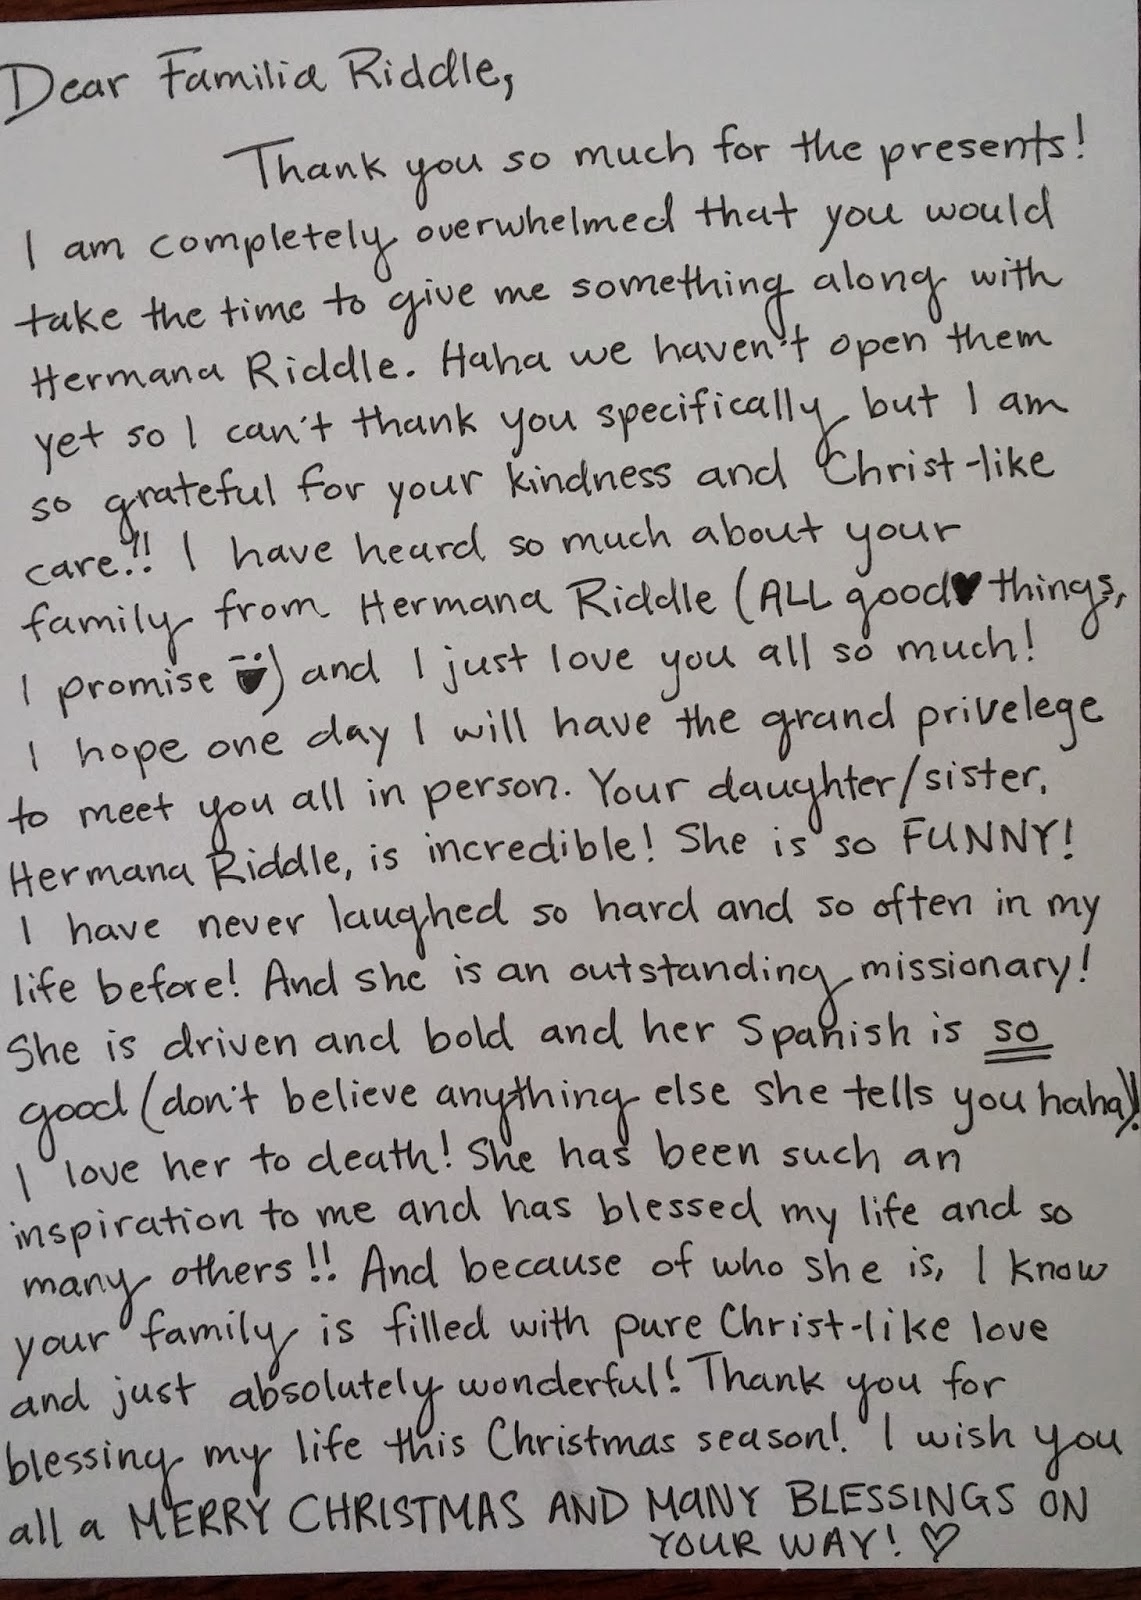 Dear Familia Riddle,
Thank you so much for the presents!
I am completely overwhelmed that you would
take the time to give me something along with
Hermana Riddle. Haha we haven't open them
yet so I can't thank you specifically but I am
so grateful for your kindness and Christ-like
care!!! I have heard so much about your
family from Hermana Riddle (ALL good♥ things,
I promise) and I just love you all so much!
I hope one day I will have the grand privelege
to meet you all in person. Your daughter/sister,
Hermana Riddle, is incredible! She is so FUNNY!
I have never laughed so hard and so often in my
life before! And she is an outstanding missionary!
She is driven and bold and her Spanish is so
good (don't believe anything else she tells you haha)!
I love her to death! She has been such an
inspiration to me and has blessed my life and so
many others!! And because of who she is, I know
your family is filled with pure Christ-like love
and just absolutely wonderful! Thank you for
blessing my life this Christmas season! I wish you
all a MERRY CHRISTMAS AND MANY BLESSINGS ON
YOUR WAY! ♡